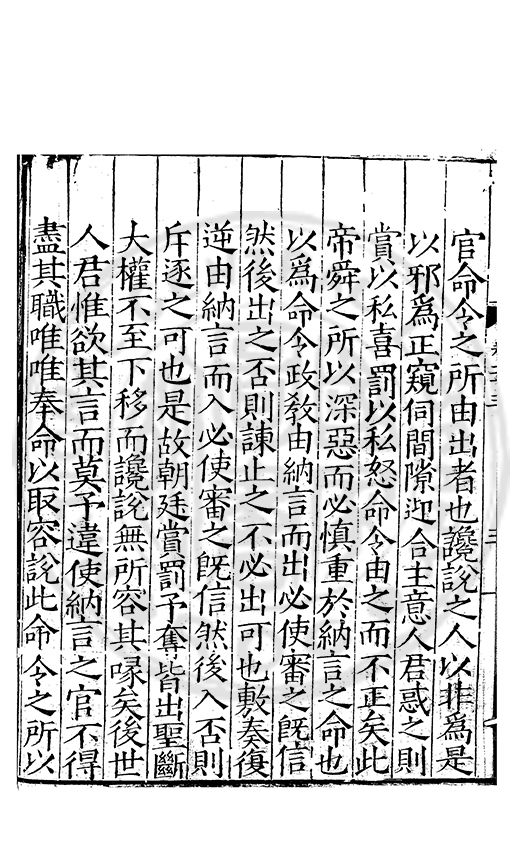 官命令之所由出者也讒說之人以非爲是
以邪爲正窺伺間隙迎合主意人君惑之則
賞以私喜罰以私怒命令由之而不正矣此
帝舜之所以深惡而必慎重於納言之命也
以爲命令政敎由納言而出必使審之旣信
然後出之否則諫止之不必出可也敷奏復
逆由納言而入必使審之旣信然後入否則
斥逐之可也是故朝廷賞罰予奪皆出聖斷
大權不至下移而讒說無所容其喙矣後世
人君惟欲其言而莫予違使納言之官不得
盡其職唯唯奉命以取容說此命令之所以